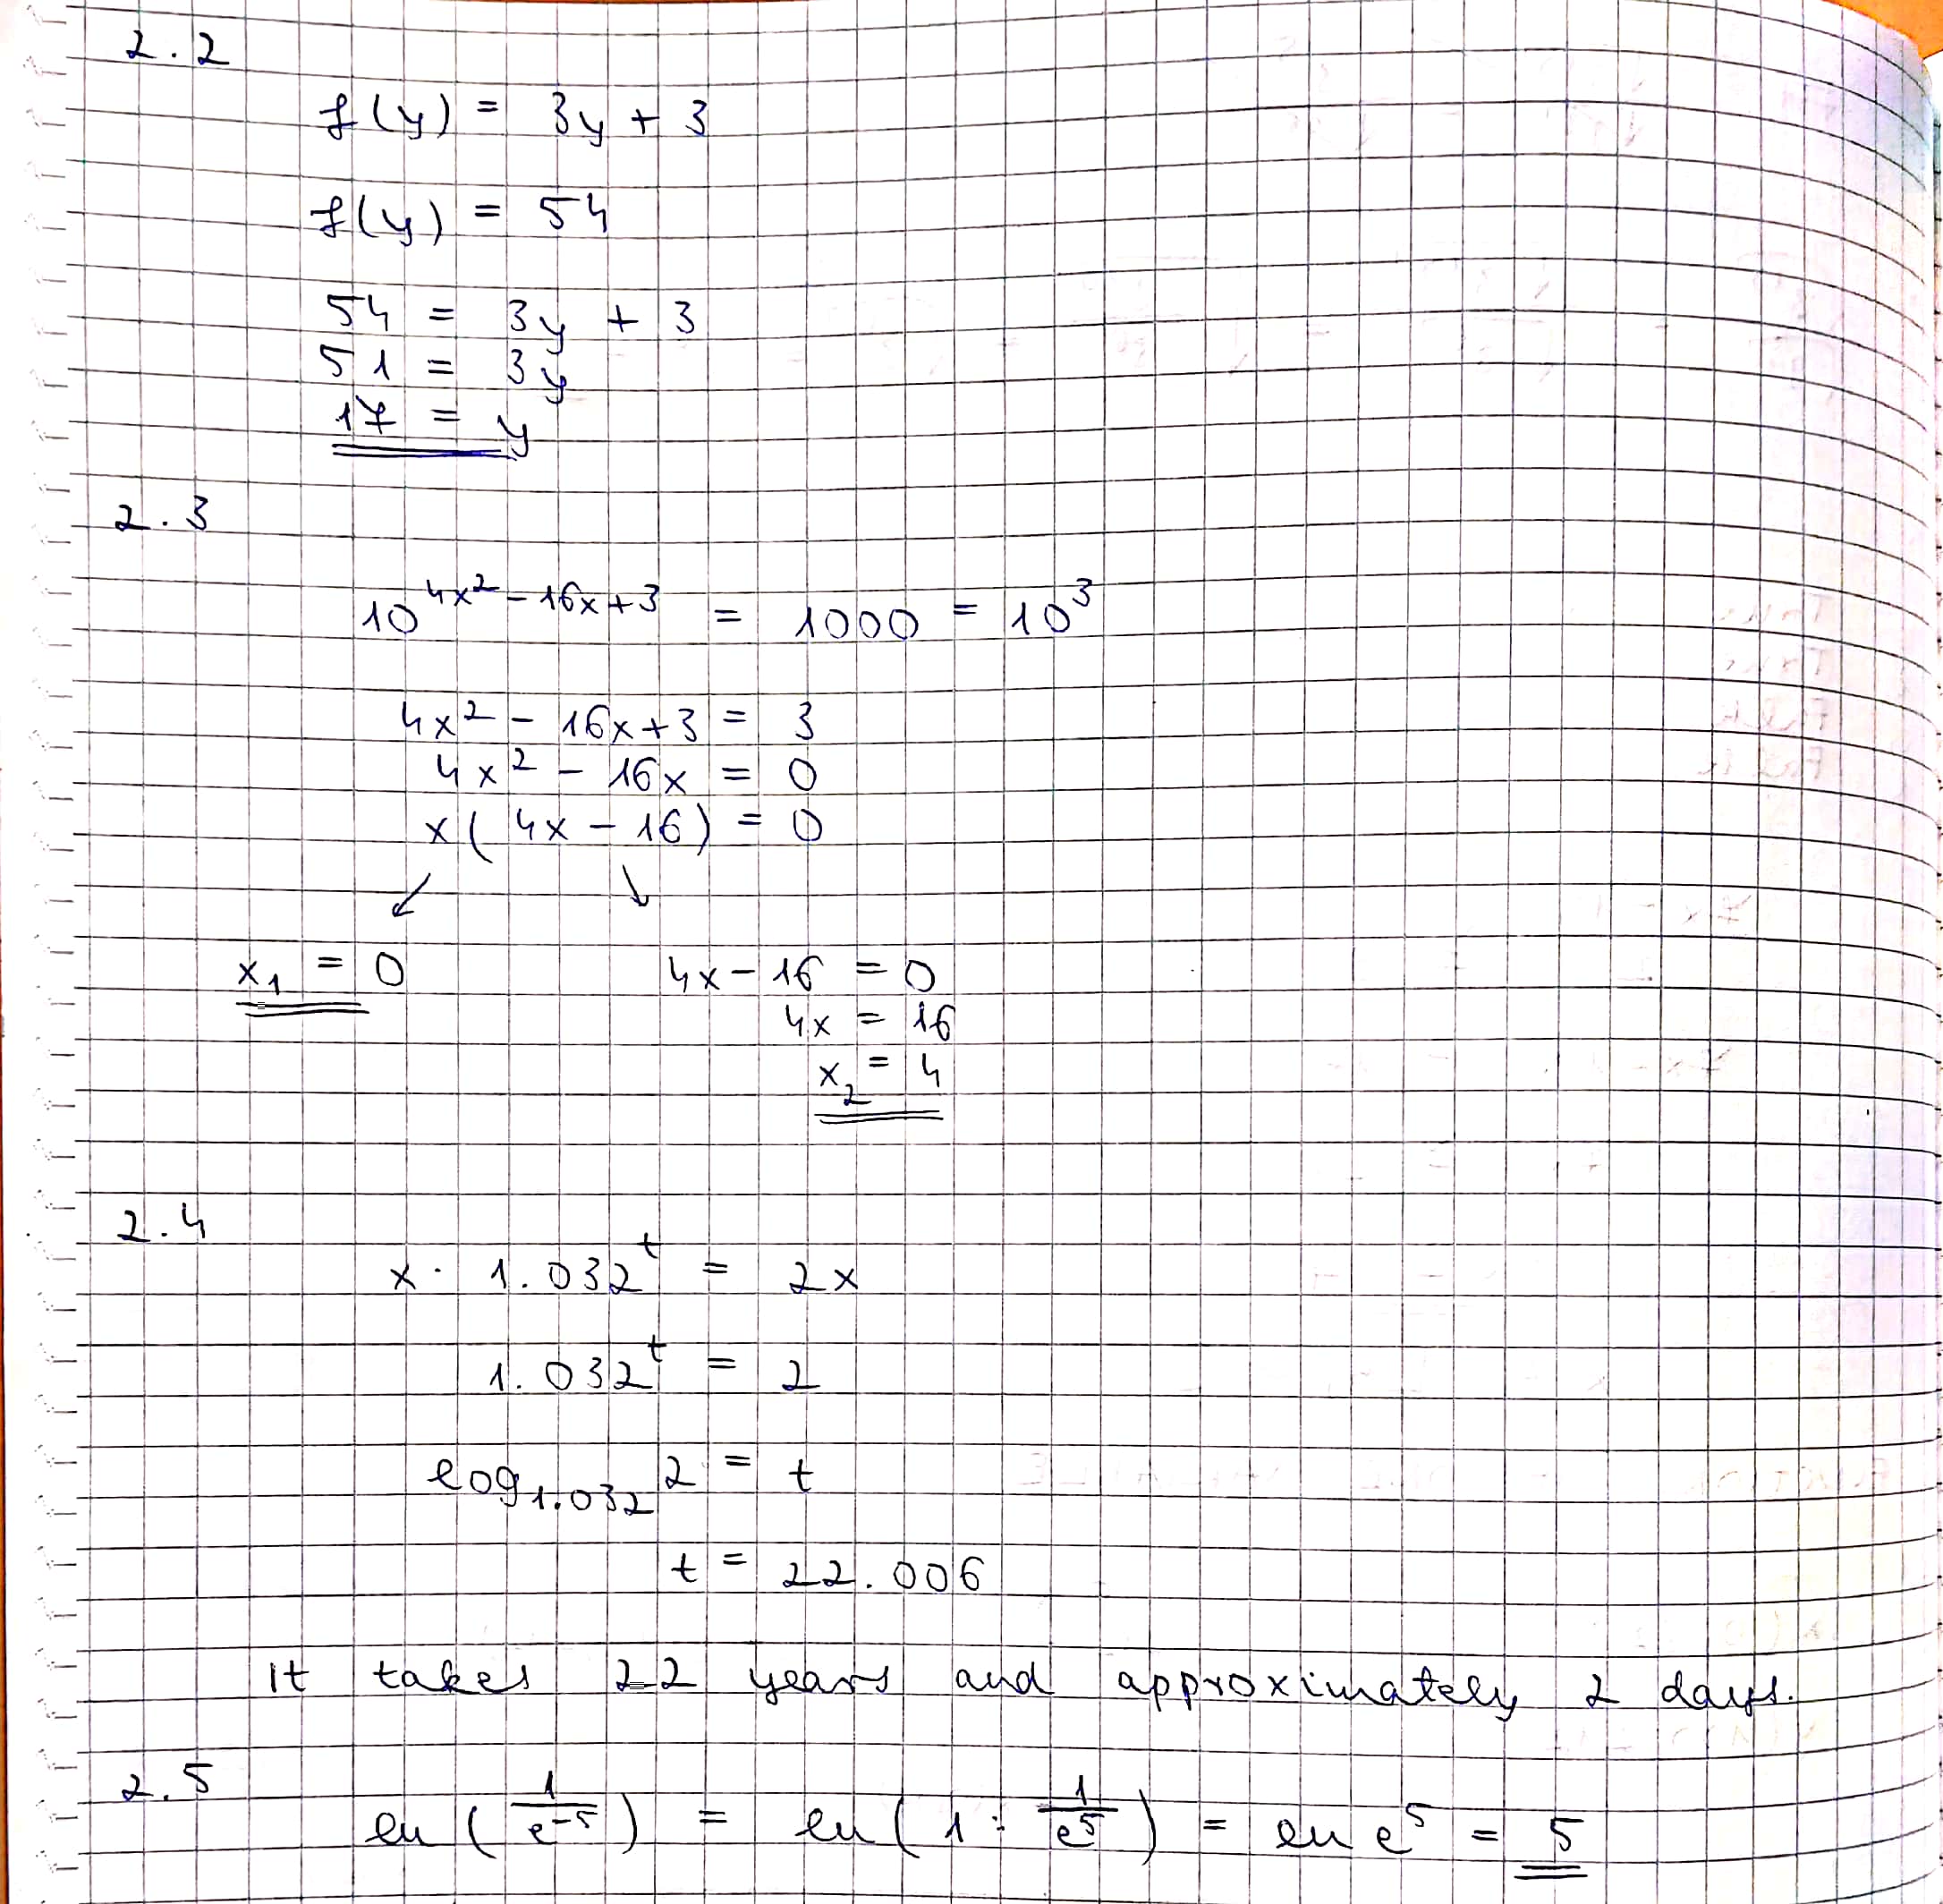 2.2
f(y) = 3y + 3
f(y) = 54
54 = 3y + 3
51 = 3y
17 = y
2.3
10^{4x² - 16x + 3} = 1000 = 10³
4x² - 16x + 3 = 3
4x² - 16x = 0
x(4x - 16) = 0
↙ ↘
x₁ = 0 4x - 16 = 0
4x = 16
x₂ = 4
2.4
x · 1.032^t = 2x
1.032^t = 2
log_{1.032} 2 = t
t = 22.006
It takes 22 years and approximately 2 days.
2.5 ln(1/e⁻⁵) = ln(1 : 1/e⁵) = ln e⁵ = 5